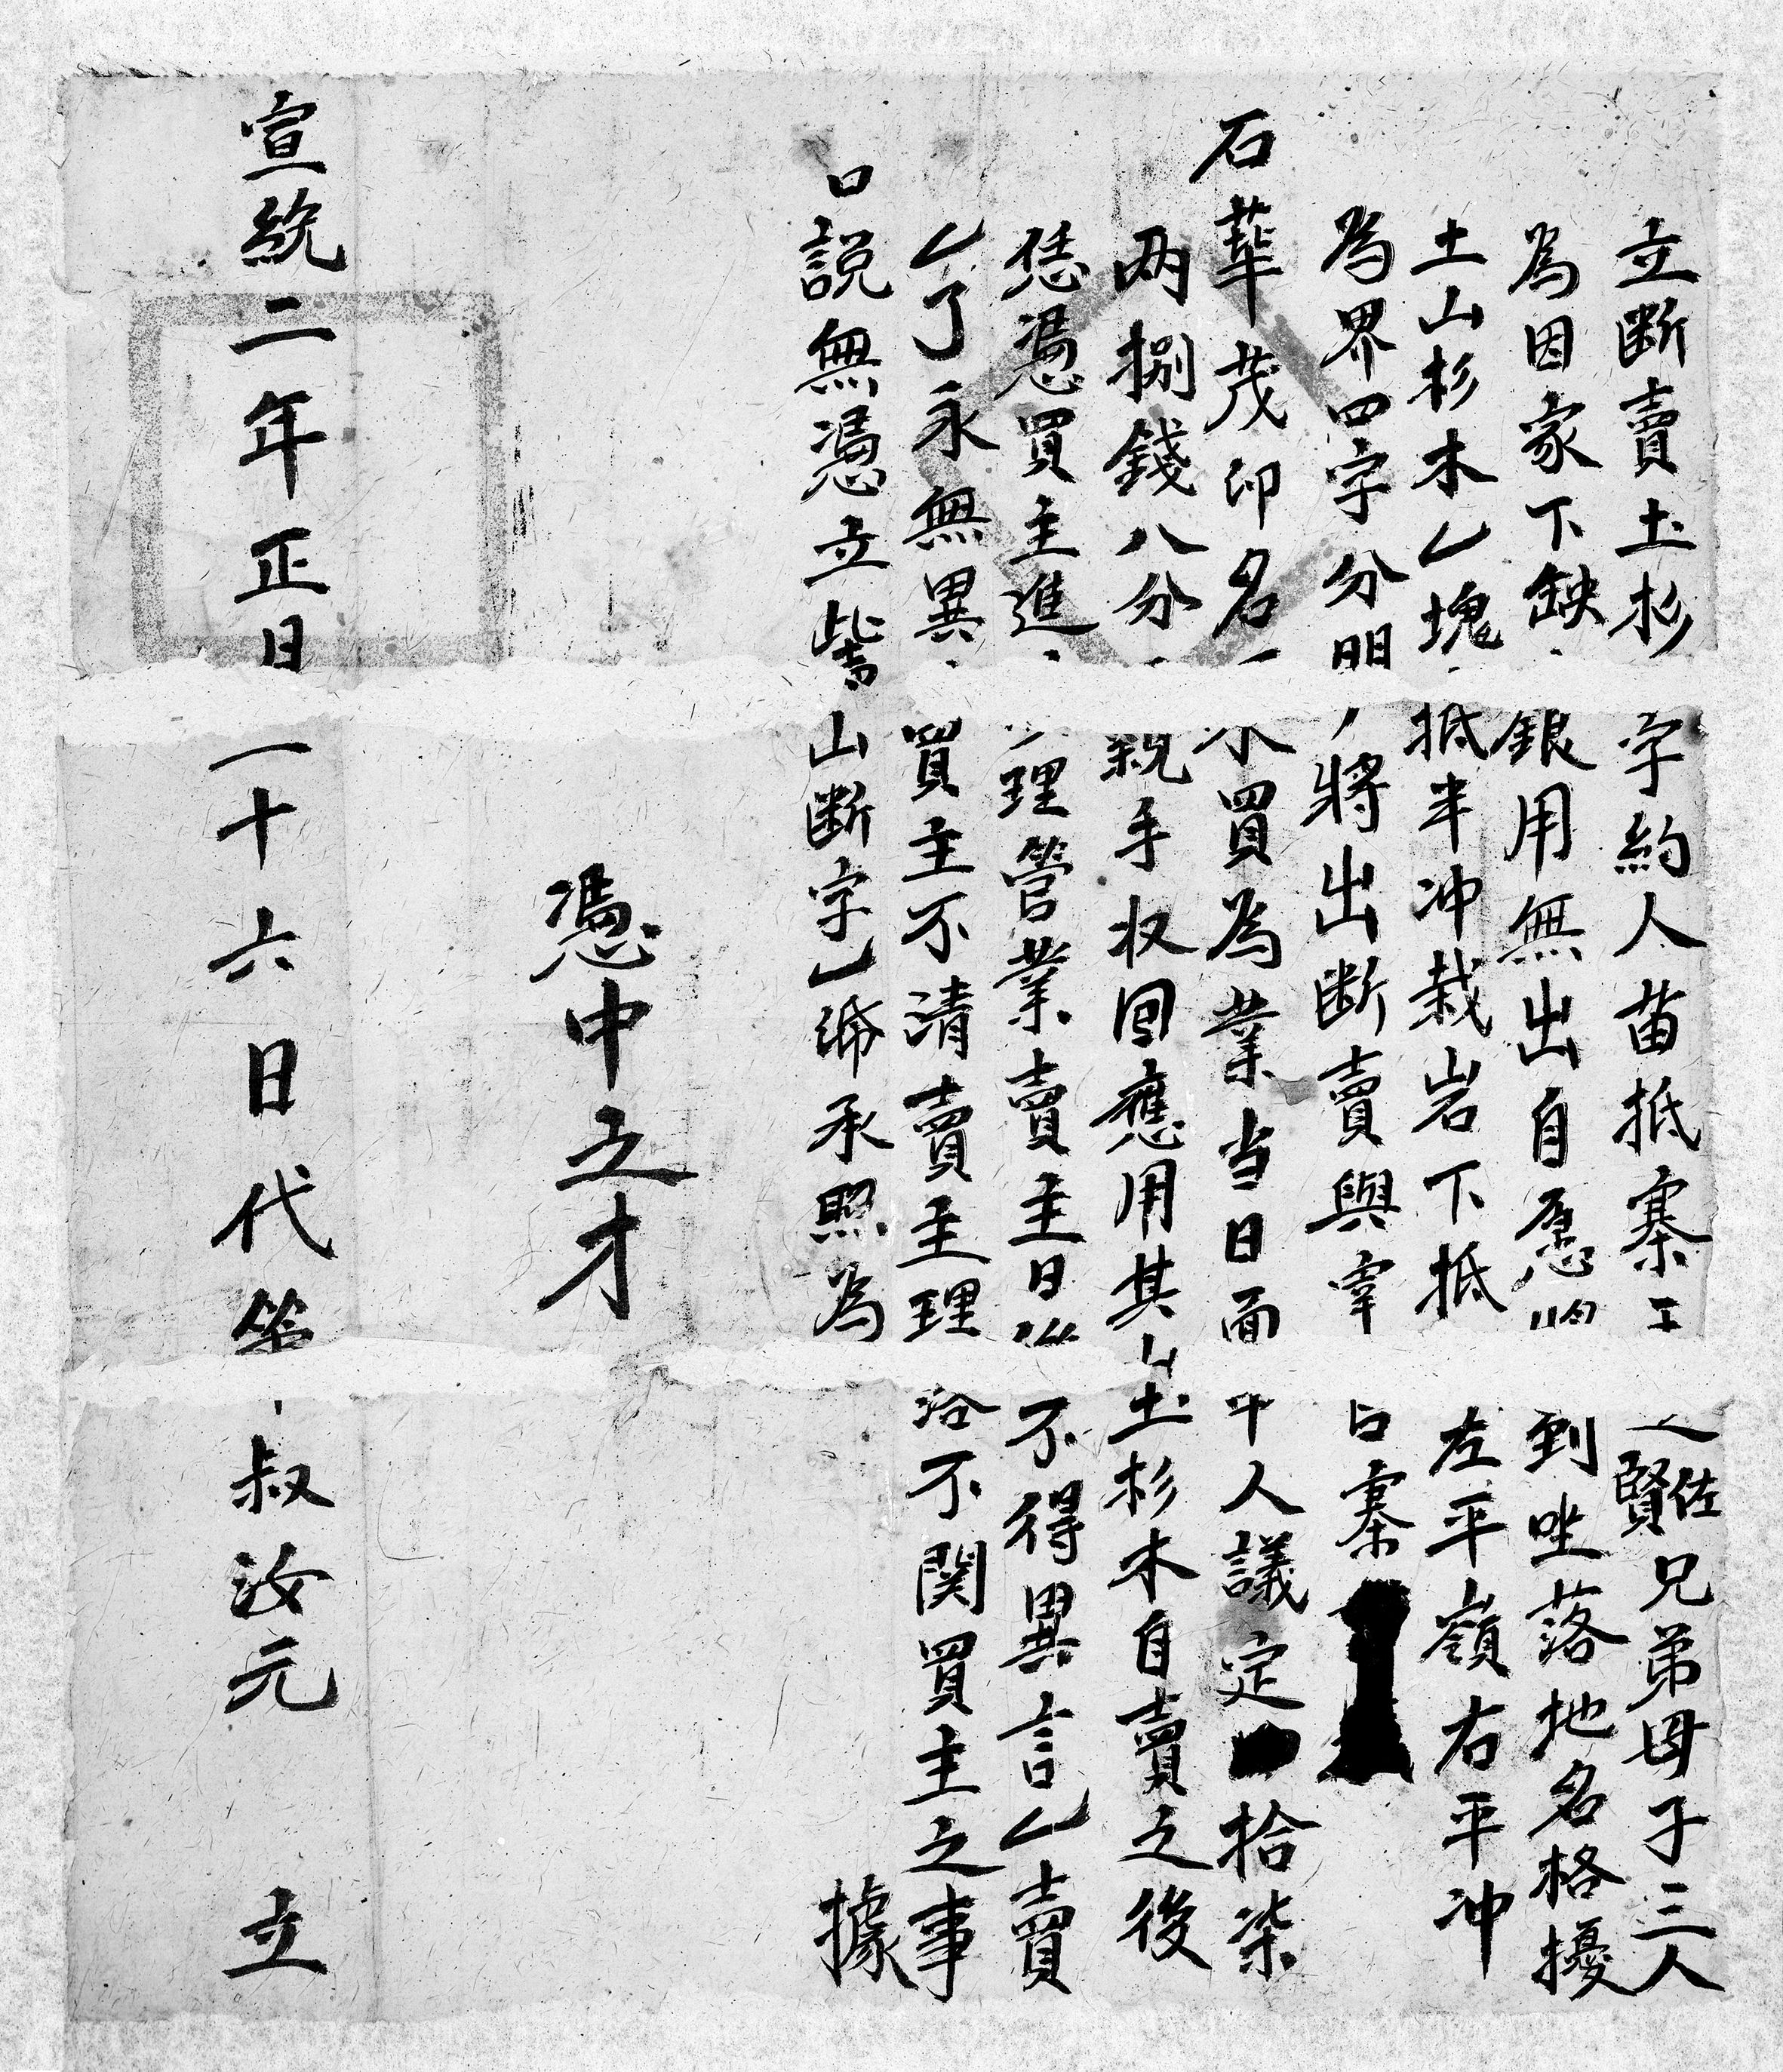 立断賣土杉字約人苗抵寨賢佐兄弟母子三人
為因家下缺銀用無出自愿到坐落地名格擾
土山杉木乙塊抵半冲栽岩下抵左平嶺右平冲
為界四字分明將出断賣與宰寨
石華茂印名買為業当日面人議定拾柒
两捌錢八分親手收回應用其土杉木自賣之後
恁憑買主進理管業賣主日不得異言乙賣
乙了永無異買主不清賣主理洽不関買主之事
口說無憑立山断字乙昻承照為據
憑中立才
宣統二年正日一十六日代筆叔汝元立